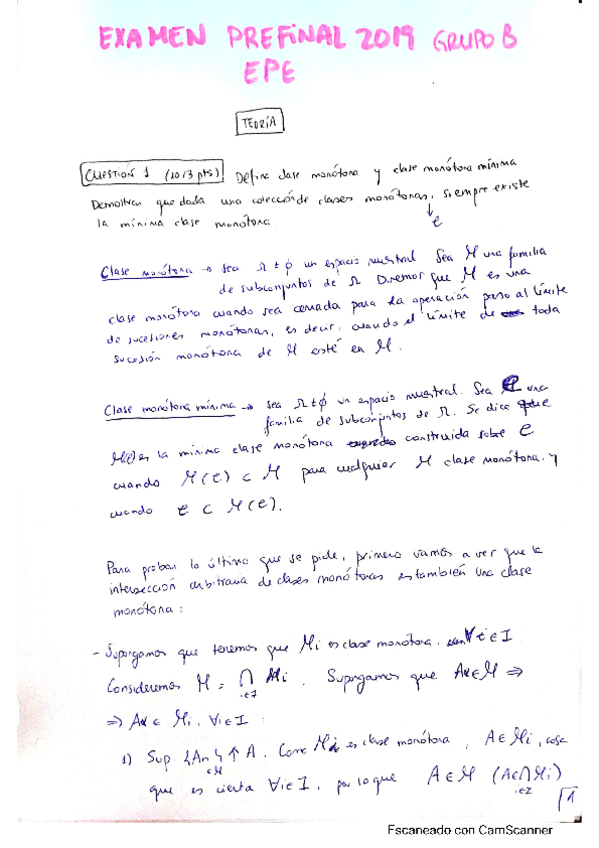 EXAMEN PREFINAL 2019 GRUPO B
EPE
TEORÍA
CUESTIÓN 1 (10/3 pts) Define clase monótona y clase monótona mínima
Demostrar que dada una colección de clases monótonas, siempre existe
la mínima clase monótona. e
Clase monótona → Sea Ω ≠ ϕ un espacio muestral. Sea M una familia
de subconjuntos de Ω. Diremos que M es una
clase monótona cuando sea cerrada para la operación paso al límite
de sucesiones monótonas, es decir, cuando el límite de toda
sucesión monótona de M esté en M.
Clase monótona mínima → Sea Ω ≠ ϕ un espacio muestral. Sea C una
familia de subconjuntos de Ω. Se dice que
M(C) es la mínima clase monótona construida sobre C
cuando M(C) ⊂ M para cualquier M clase monótona. y
cuando C ⊂ M(C).
Para probar lo último que se pide, primero vamos a ver que la
intersección arbitraria de clases monótonas es también una clase
monótona:
- Supongamos que tenemos que Mi es clase monótona. ∀i∈I
Consideremos M = ∩ Mi. Supongamos que A∈M ⇒
i∈I
⇒ A ∈ Mi, ∀i∈I :
1) Sup {An} ↑ A. Como Mi es clase monótona, A∈Mi, cosa
que es cierta ∀i∈I, por lo que A∈M (A∈∩Mi)
i∈I
1
Escaneado con CamScanner